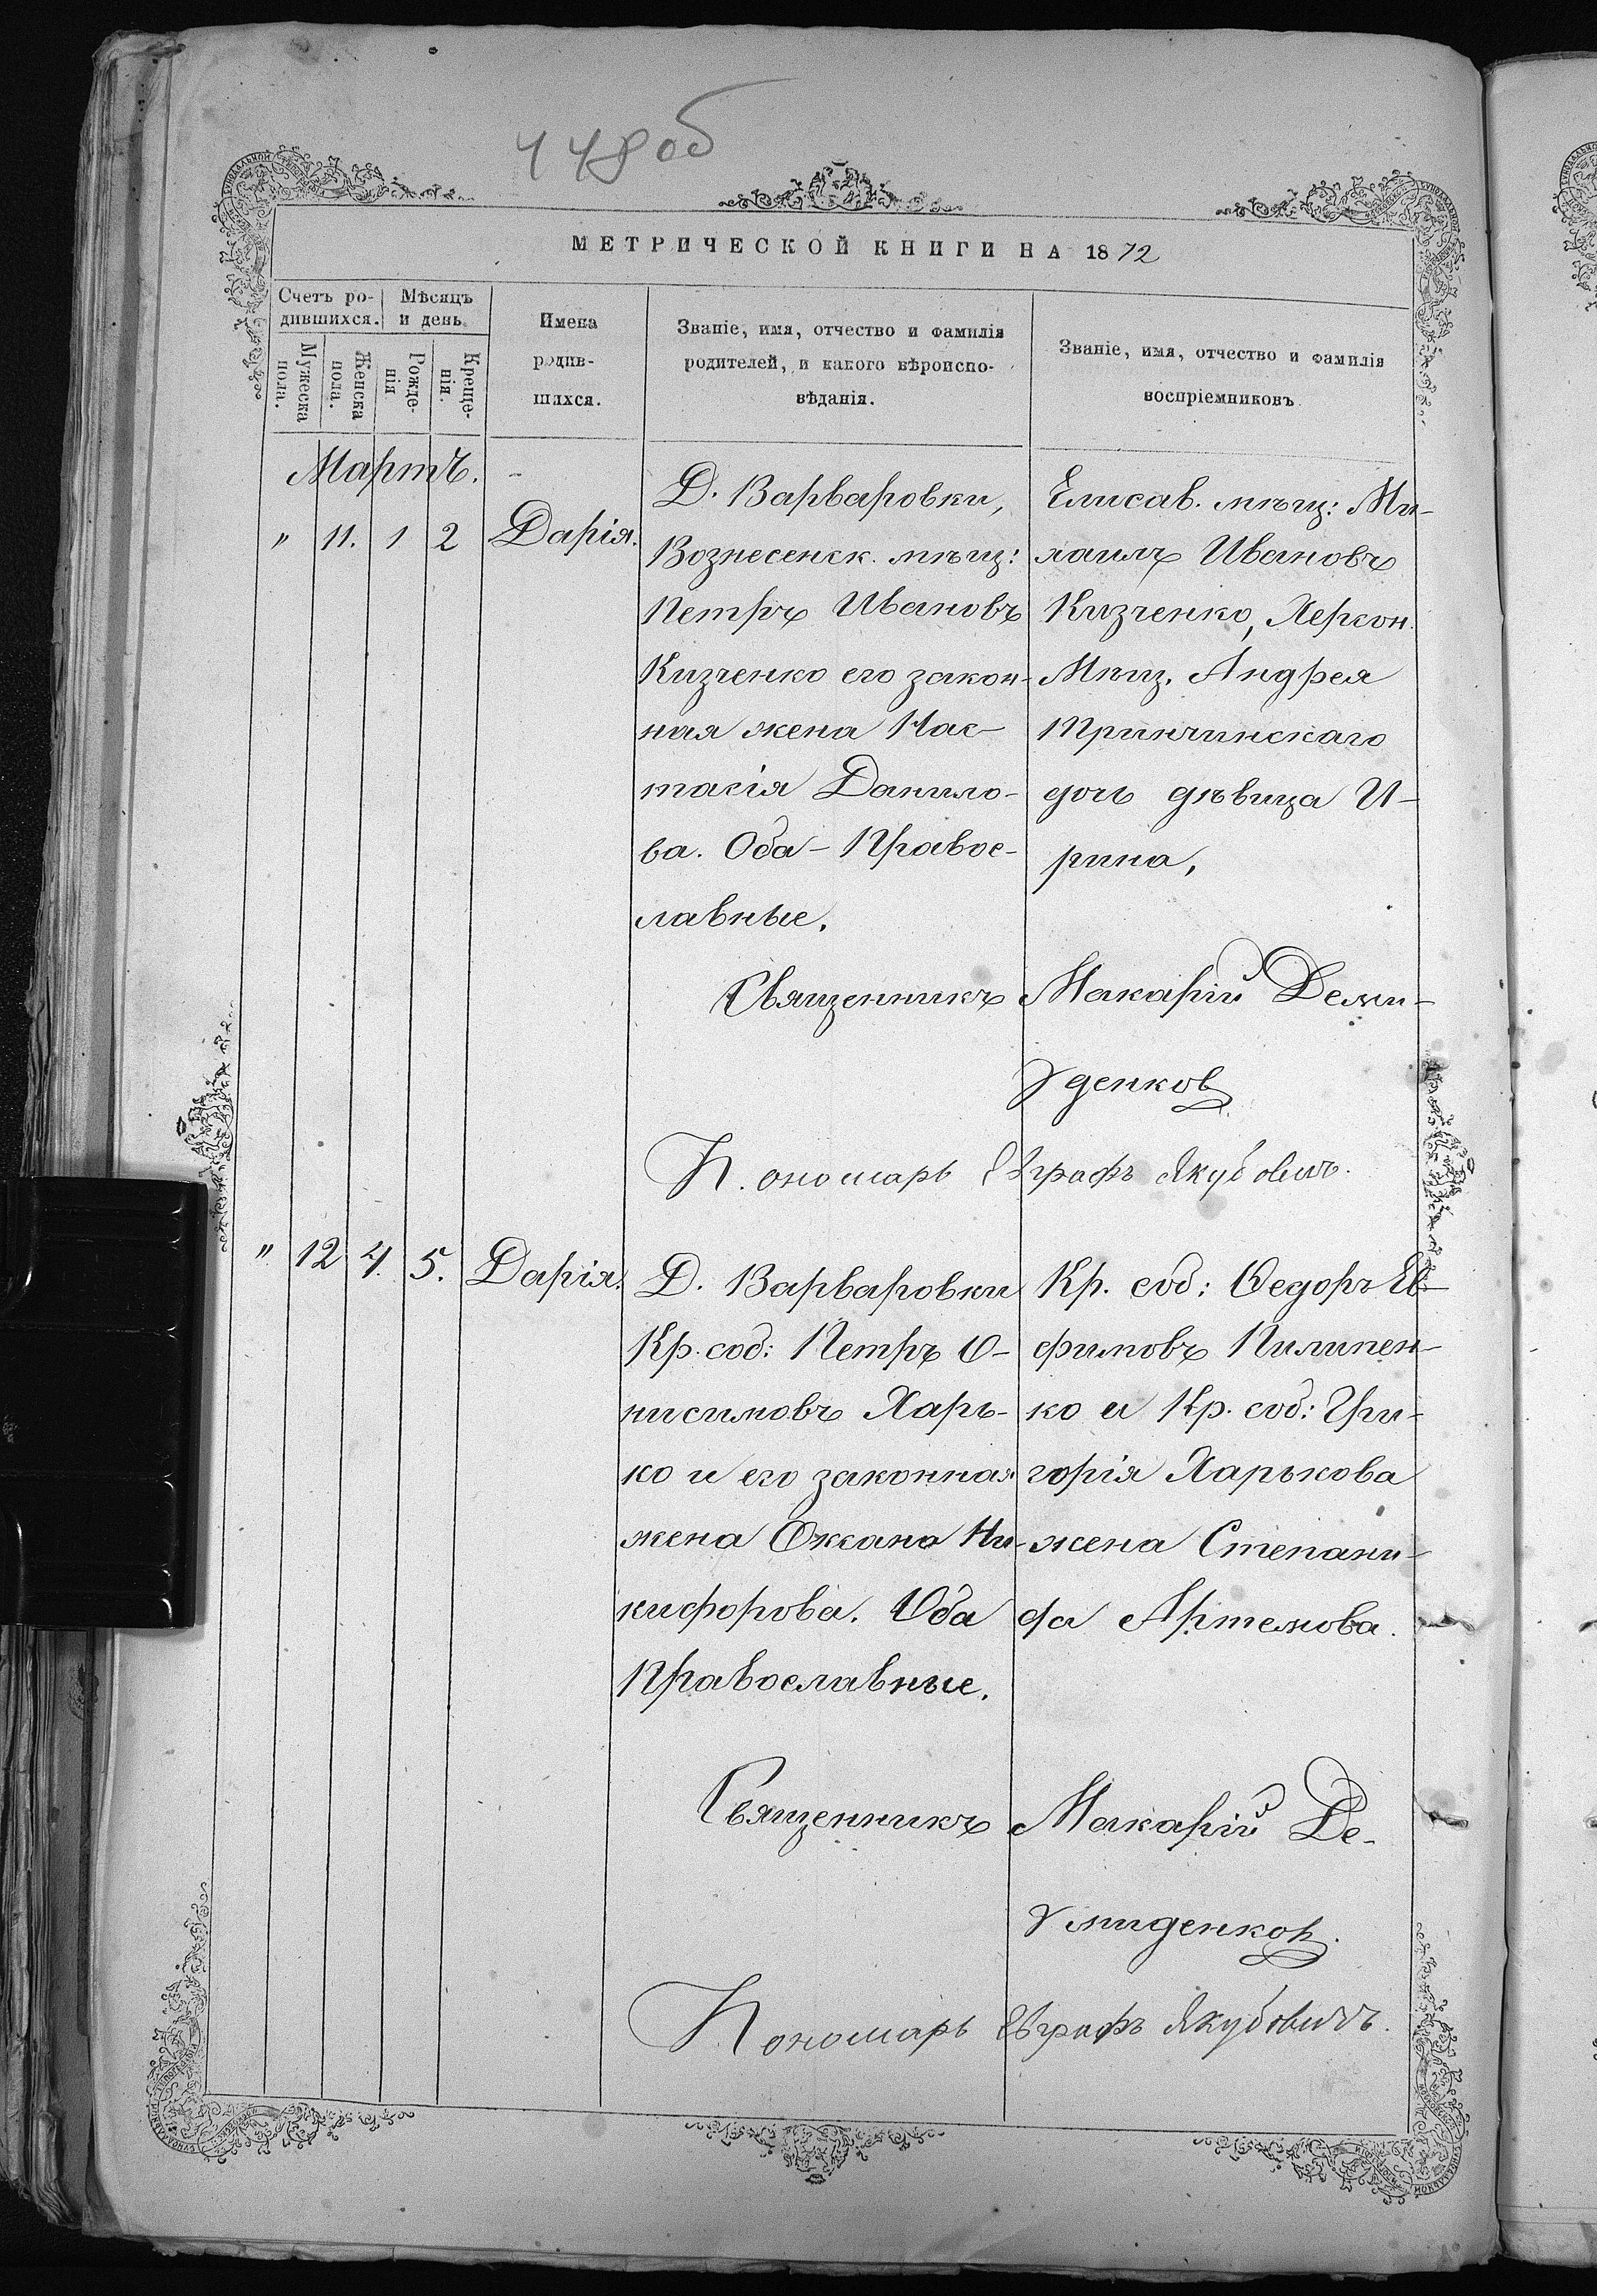 448об
МЕТРИЧЕСКОЙ КНИГИ НА 1872
Счетъ родившихся.
Мѣсяцъ и день.
Мужеска пола.
Женска пола.
Рожденія
Крещенія.
Имена
родив-
шихся.
Званіе, имя, отчество и фамилія
родителей, и какого вѣроиспо-
вѣданія.
Званіе, имя, отчество и фамилія
воспріемниковъ
Мартъ.
" 11. 1 2 Дарія.
Д. Варваровки,
Вознесенск. мѣщ:
Петръ Ивановъ
Кизченко его закон-
ная жена Нас-
тасія Данило-
ва. Оба - Правос-
лавные.
Елисав. мѣщ: Ми-
хаилъ Ивановъ
Кизченко, Херсон.
Мѣщ. Андрея
дочь дѣвица И-
рина,
Священникъ Макарій Деми-
денков
Пономарь Евграфъ Якубовичъ.
" 12 4. 5. Дарія.
Д. Варваровки
Кр. соб: Петръ О-
нисимовъ Харь-
ко и его законная
жена Оксана Ни-
кифорова. Оба
Православные.
Кр. соб: Ѳедоръ Е-
фимовъ Пилипен-
ко и Кр. соб: Гри-
горія Харькова
жена Степани-
да Артемова.
Священникъ Макарій Де-
миденков.
Пономарь Евграфъ Якубовичъ.